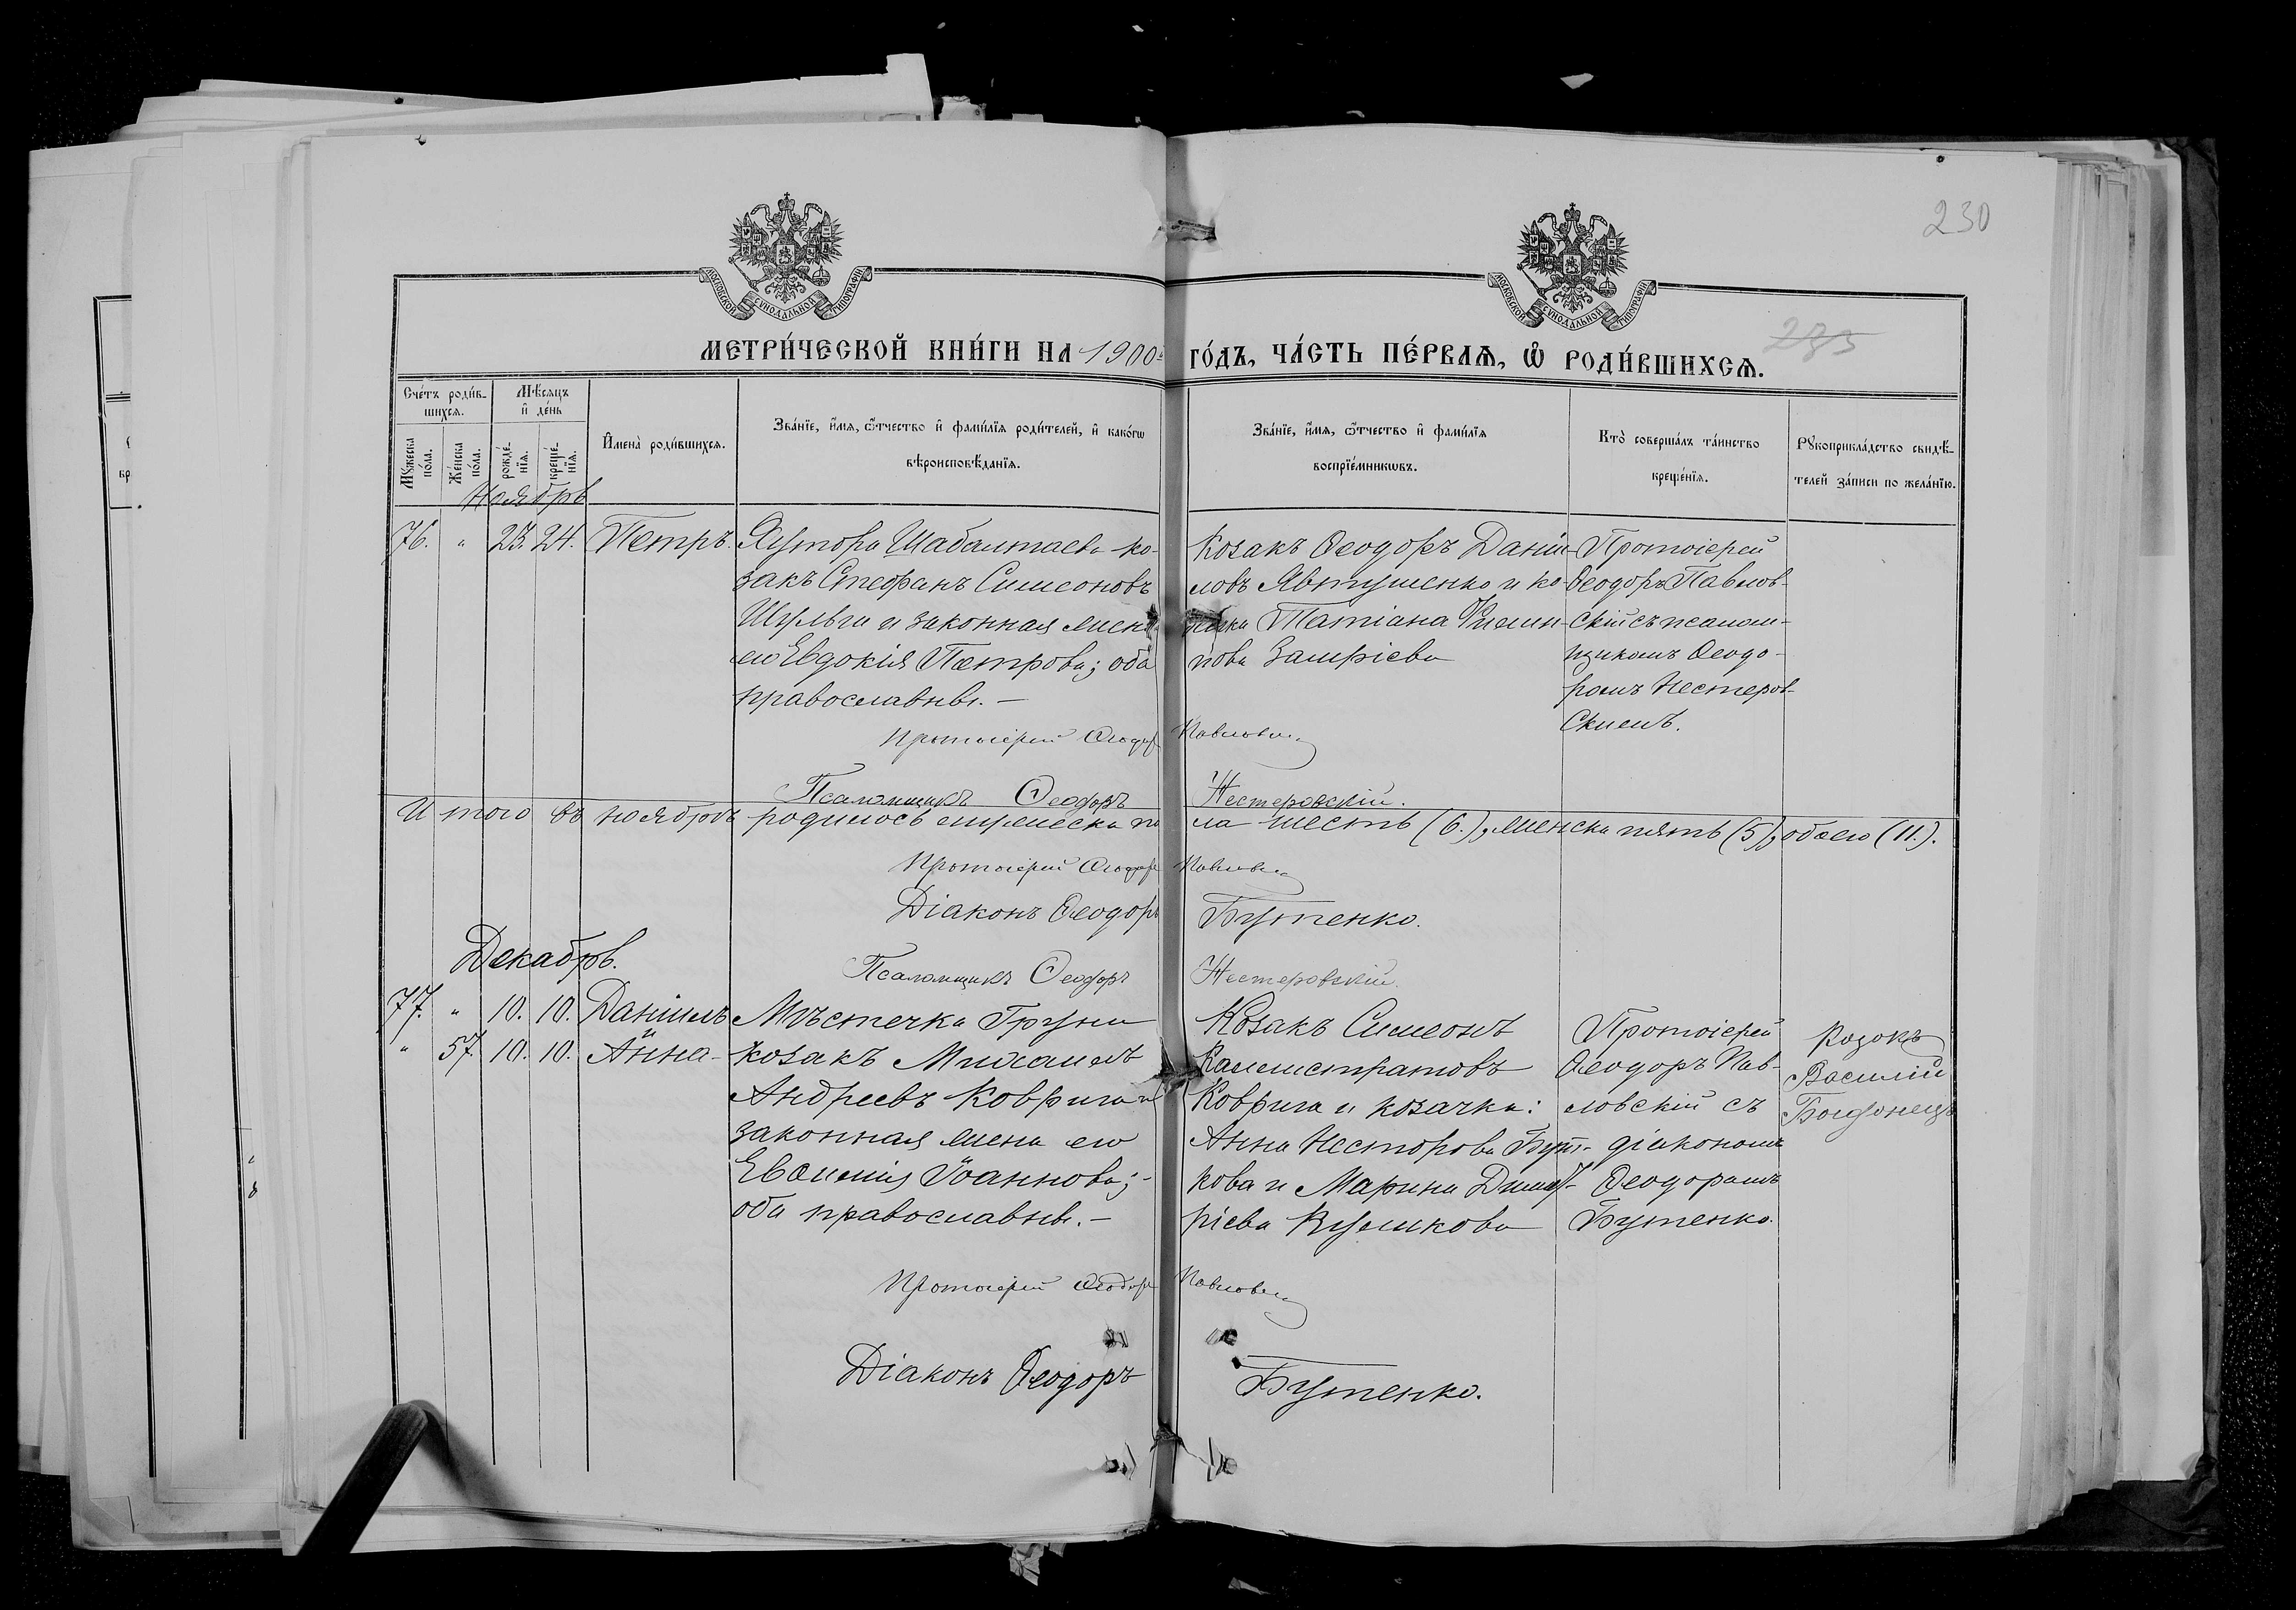 230
МОСКОВСКОЙ СѴНОДАЛЬНОЙ ТИПОГРАФІИ
МОСКОВСКОЙ СѴНОДАЛЬНОЙ ТИПОГРАФІИ
235
МЕТРИ́ЧЕСКОЙ КНИ́ГИ НА 1900й ГО́ДЪ, ЧА́СТЬ ПЕ́РВАѦ, Ѡ РОДИ́ВШИХСѦ.
Сче́тъ роди́в-
шихсѧ.
Мꙋжеска по́ла.
Же́нска по́ла.
Мѣ́сѧцъ
и҆ де́нь
рожде́-
нїѧ.
креще́-
нїѧ.
И҆мена̀ роди́вшихсѧ.
Зва́нїе, и҆́мѧ, ѻ҆́тчество и҆ фами́лїѧ роди́телей, и҆ како́гѡ
вѣроисповѣ́данїѧ.
Зва́нїе, и҆́мѧ, ѻ҆́тчество и҆ фами́лїѧ
воспрїе́мникѡвъ.
Кто̀ соверша́лъ та́инство
креще́нїѧ.
Рꙋкоприкла́дство свидѣ́-
телей за́писи по жела́нїю.
Ноябрь
76. " 23. 24. Петръ.
Хутора Шабалтаева ко-
закъ Стефанъ Симеоновъ
Шульга и законная жена
его Евдокія Петрова; оба
православны. —
Козакъ Ѳеодоръ Даніи-
ловъ Явтушенко и ко-
зачка Татіана Филип-
пова Замріева
Протоіерей
Ѳеодоръ Павлов-
скій съ псалом-
щикомъ Ѳеодо-
ромъ Нестеров-
скимъ.
Протоіерей Ѳеодоръ Павловскій
Псаломщикъ Ѳеодоръ Нестеровскій.
Итого въ ноябрѣ родилось мужеска пола шесть (6.), женска пять (5), обоего (11.).
Протоіерей Ѳеодоръ Павловскій
Діаконъ Ѳеодоръ Бутенко.
Декабрь.
Псаломщикъ Ѳеодоръ Нестеровскій.
77. " 10. 10. Даніилъ
" 57. 10. 10. Анна-
Мѣстечка Груни
козакъ Михаилъ
Андреевъ Коврига и
законная жена его
Евѳимія Іоаннова;-
оба православны. —
Козакъ Симеонъ
Каллистратовъ
Коврига и козачка:
Анна Несторова Бут-
кова и Марина Димит-
ріева
Протоіерей
Ѳеодоръ Пав-
ловскій съ
діакономъ
Ѳеодоромъ
Бутенко.
Козакъ
Василій
Протоіерей Ѳеодоръ Павловскій
Діаконъ Ѳеодоръ Бутенко.